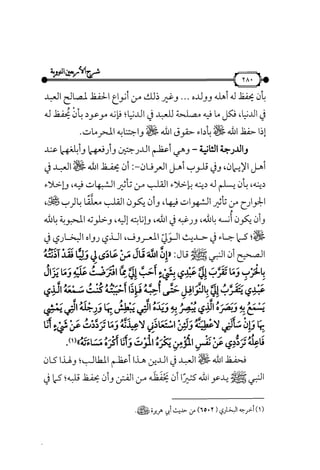 شرح الأربعين النووية
٢٨٠
بأن يحفظ له أهله وولده ... وغير ذلك من أنواع الحفظ لمصالح العبد
في الدنيا، فكل ما فيه مصلحة للعبد في الدنيا؛ فإنه موعود بأن يُحفظ له
إذا حفظ الله ﷻ بأداء حقوق الله ﷻ واجتنابه المحرمات.
والدرجة الثانية - وهي أعظم الدرجتين وأرفعهما وأبلغهما عند
أهل الإيمان، وفي قلوب أهل العرفان-: أن يحفظ الله ﷻ العبد في
دينه، بأن يسلم له دينه بإخلاء القلب من تأثير الشبهات فيه، وإخلاء
الجوارح من تأثير الشهوات فيها، وأن يكون القلب معلَّقًا بالرب ﷻ،
وأن يكون أُنسه بالله، ورغبه في الله، وإنابته إليه، وخلوته المحبوبة بالله
ﷻ؛ كما جاء في حديث الوَلِيِّ المعروف، الذي رواه البخاري في
الصحيح أن النبي ﷺ قال: «إِنَّ اللهَ قَالَ مَنْ عَادَى لِي وَلِيًّا فَقَدْ آذَنْتُهُ
بِالْحَرْبِ وَمَا تَقَرَّبَ إِلَيَّ عَبْدِي بِشَيْءٍ أَحَبَّ إِلَيَّ مِمَّا افْتَرَضْتُ عَلَيْهِ وَمَا يَزَالُ
عَبْدِي يَتَقَرَّبُ إِلَيَّ بِالنَّوَافِلِ حَتَّى أُحِبَّهُ فَإِذَا أَحْبَبْتُهُ كُنْتُ سَمْعَهُ الَّذِي
يَسْمَعُ بِهِ وَبَصَرَهُ الَّذِي يُبْصِرُ بِهِ وَيَدَهُ الَّتِي يَبْطُشُ بِهَا وَرِجْلَهُ الَّتِي يَمْشِي
بِهَا وَإِنْ سَأَلَنِي لَأُعْطِيَنَّهُ وَلَئِنْ اسْتَعَاذَنِي لَأُعِيذَنَّهُ وَمَا تَرَدَّدْتُ عَنْ شَيْءٍ أَنَا
فَاعِلُهُ تَرَدُّدِي عَنْ نَفْسِ الْمُؤْمِنِ يَكْرَهُ الْمَوْتَ وَأَنَا أَكْرَهُ مَسَاءَتَهُ»(١).
فحفظ الله ﷻ العبد في الدين هذا أعظم المطالب؛ ولهذا كان
النبي ﷺ يدعو الله كثيرًا أن يَحْفَظَه من الفتن وأن يحفظ قلبه؛ كما في
(١) أخرجه البخاري (٦٥٠٢) من حديث أبي هريرة ﵁.